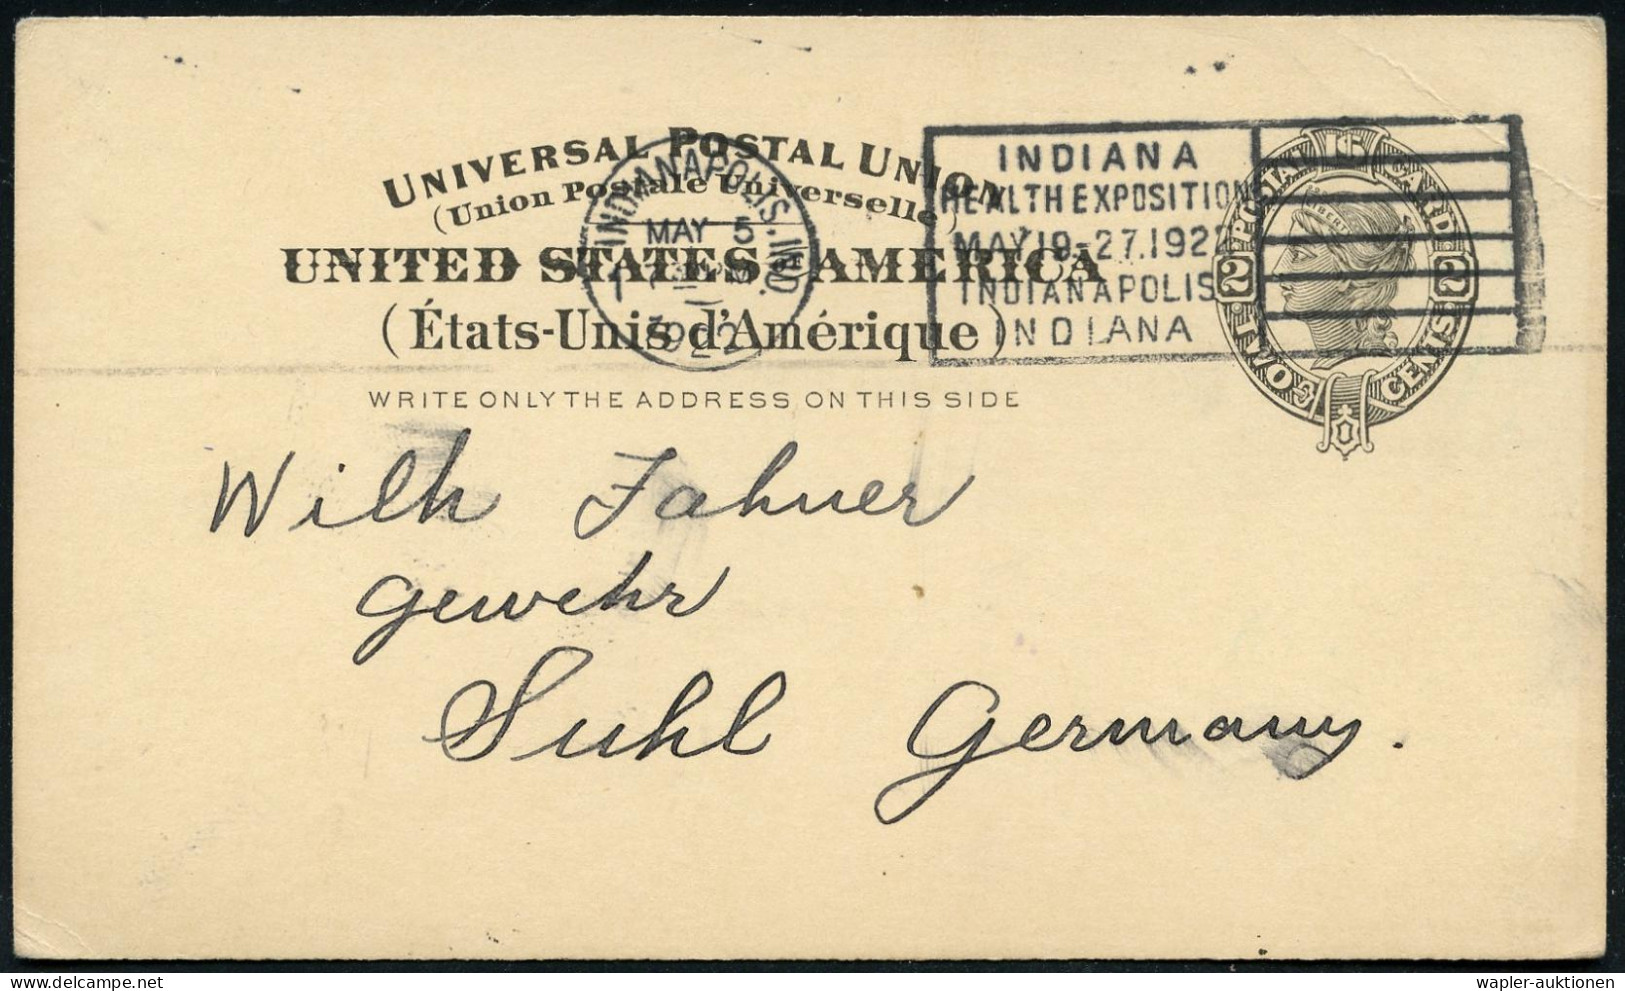 UNIVERSAL POSTAL UNION
(Union Postale Universelle)
UNITED STATES OF AMERICA
(États-Unis d'Amérique)
WRITE ONLY THE ADDRESS ON THIS SIDE
INDIANAPOLIS, IND.
MAY 5
1922
INDIANA
HEALTH EXPOSITION
MAY 19-27.1922
INDIANAPOLIS
INDIANA
POSTAL CARD
LIBERTY
2 2
TWO CENTS
Wilh Fahner
gewehr
Suhl Germany.
wapler-auktionen